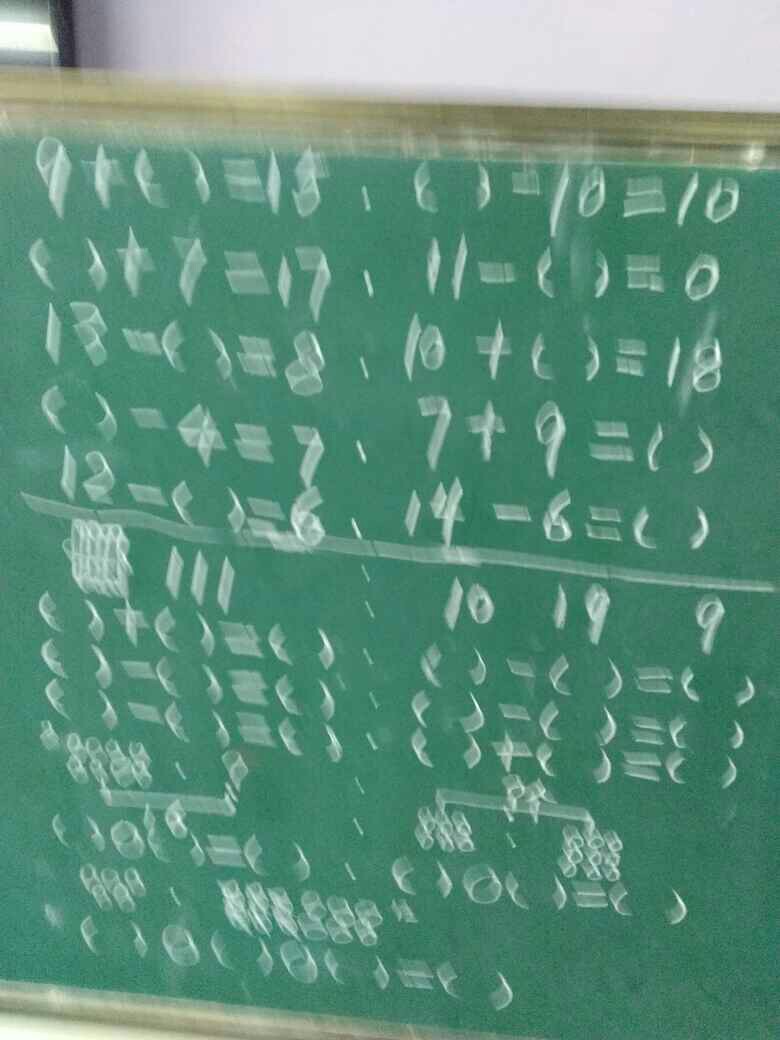 9 + ( ) = 15 ( ) - 10 = 10
( ) + 7 = 17 11 - ( ) = 0
13 - ( ) = 8 10 + ( ) = 18
( ) - 4 = 7 7 + 9 = ( )
12 - ( ) = 6 14 - 6 = ( )
10 19 9
( ) + ( ) = ( ) ( ) - ( ) = ( )
( ) - ( ) = ( ) ( ) - ( ) = ( )
( ) - ( ) = ( ) ( ) + ( ) = ( )
( ) ○ ( ) = ( ) ( ) ○ ( ) = ( )
( ) ○ ( ) ○ ( ) = ( )